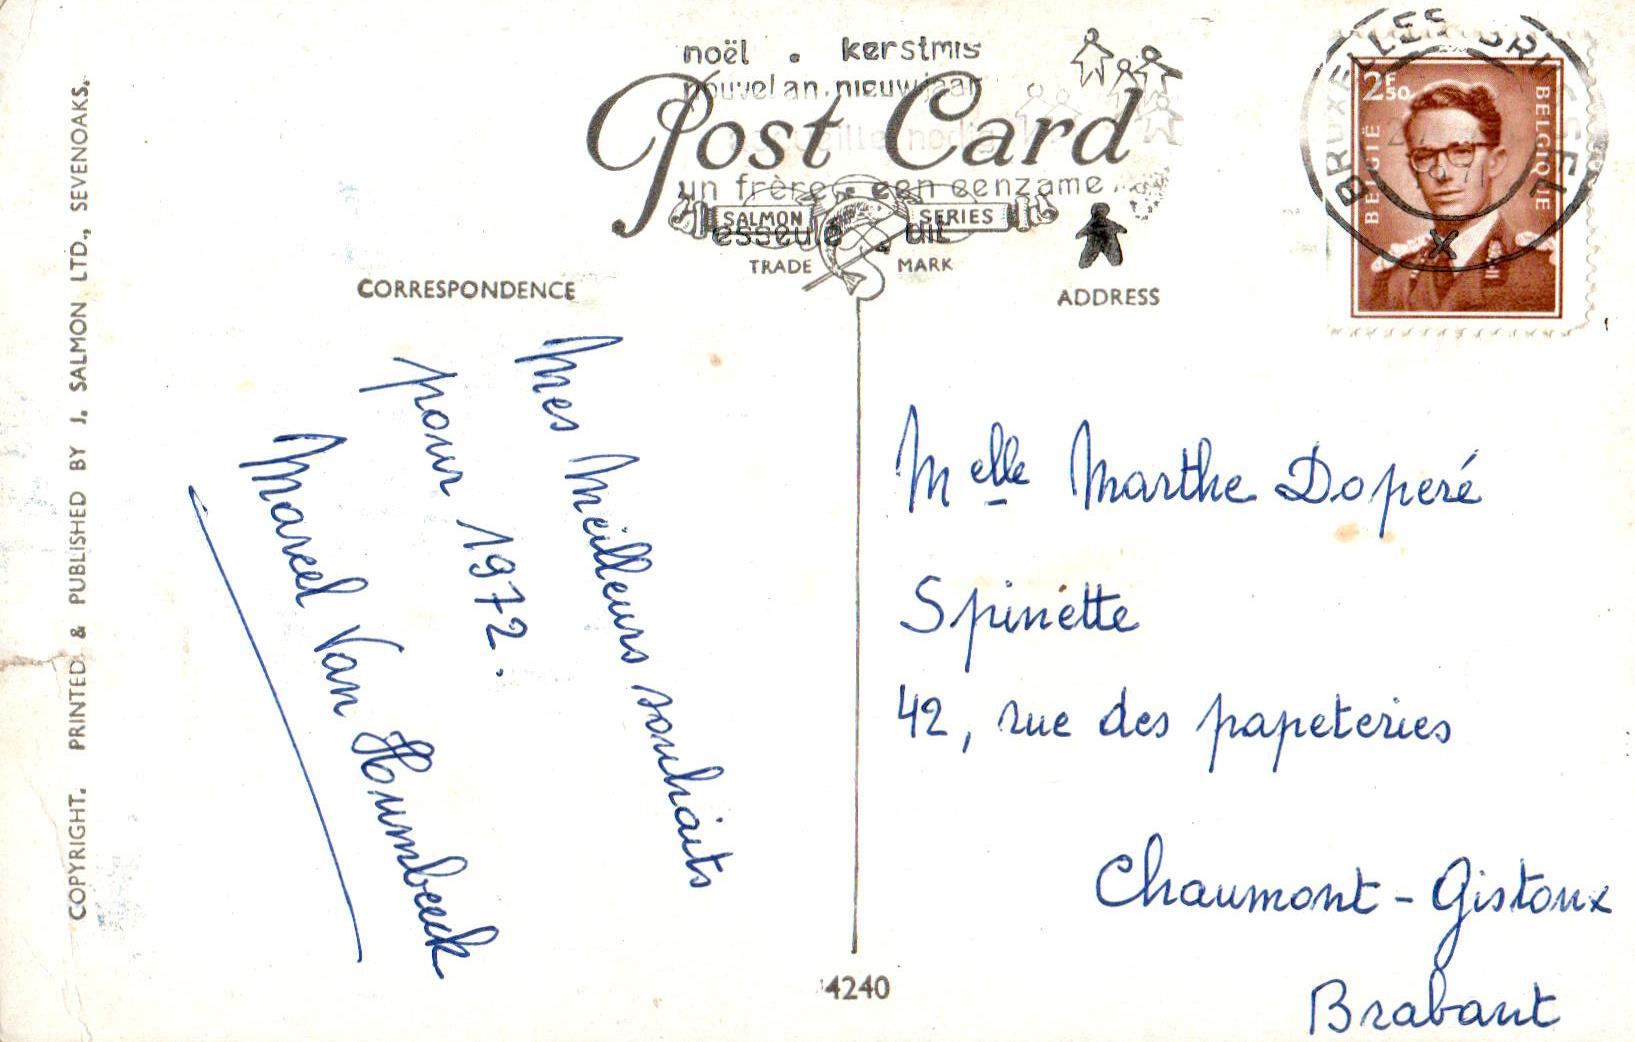 noël . kerstmis
nouvel an . nieuwjaar
Post Card
nodig
un frère . een eenzame
SALMON SERIES
esseulé . uit
TRADE MARK
CORRESPONDENCE
ADDRESS
2F50
BELGIË
BELGIQUE
BRUXELLES BRUSSEL
X
Mes Meilleurs souhaits
pour 1972.
Marcel Van Humbeeck
Melle Marthe Doperé
Spinette
42, rue des papeteries
Chaumont - Gistoux
Brabant
4240
COPYRIGHT. PRINTED & PUBLISHED BY J. SALMON LTD., SEVENOAKS.